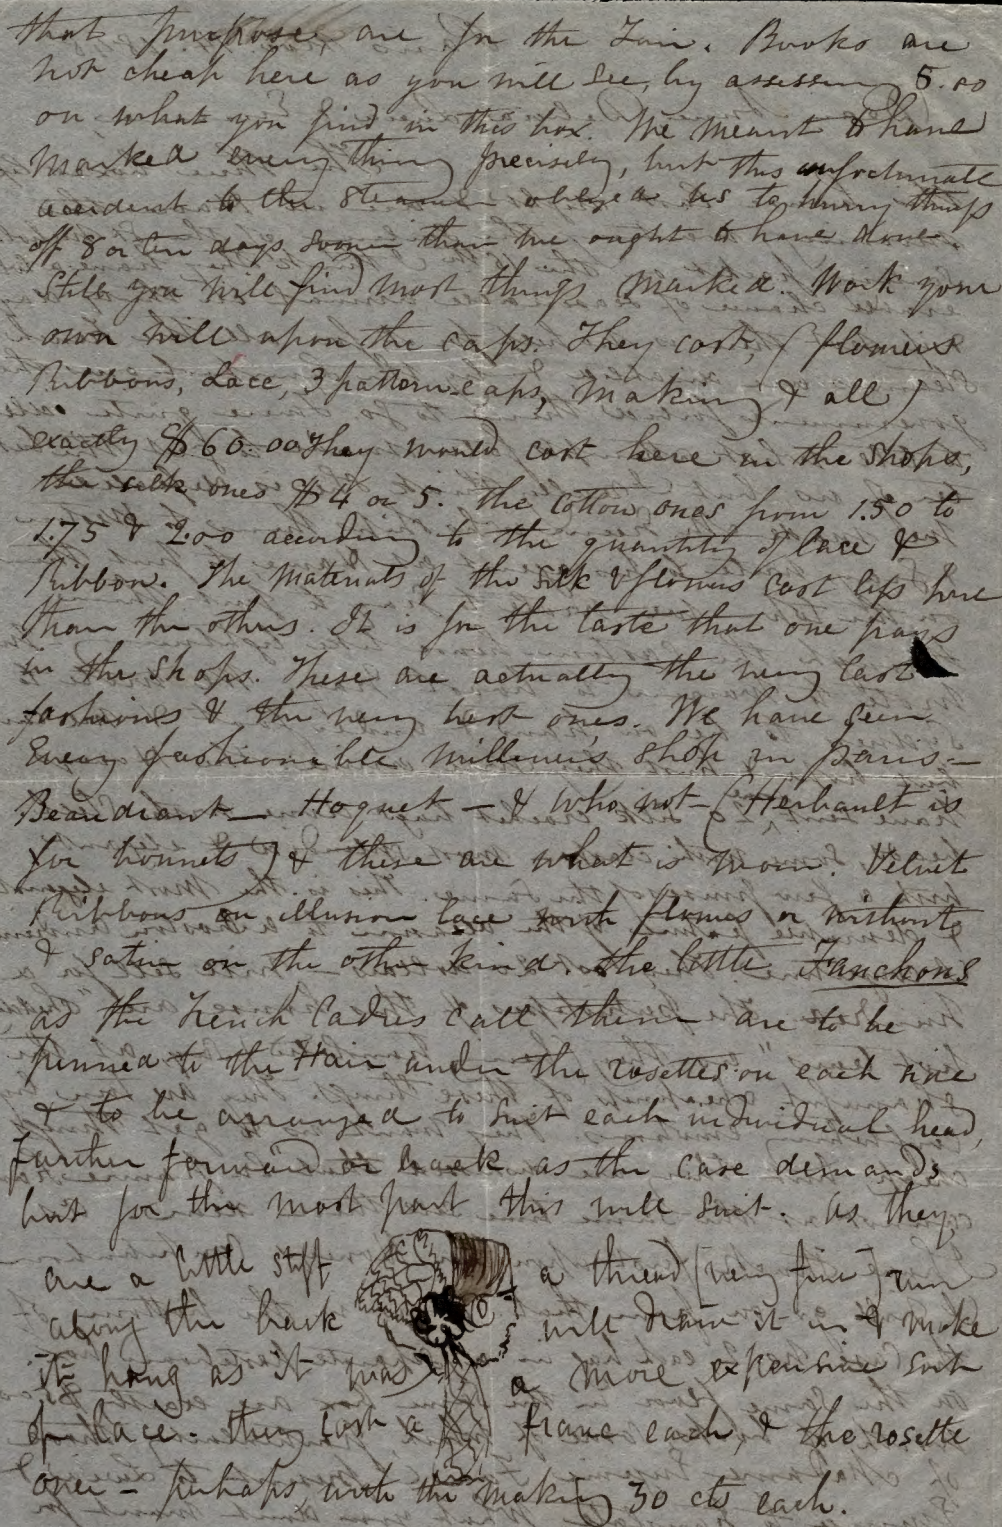 that purpose are for the Fair. Books are
not cheap here as you will see, by assessing 5.00
on what you find in this box. We meant to have
marked every thing precisely, but this unfortunate
accident to the Steamer obliged us to hurry things
off 8 or ten days sooner than we ought to have done.
Still you will find most things marked. Work your
own will upon the caps. They cost, (flowers
Ribbons, Lace, 3 pattern-caps, making & all)
exactly $60.00 They would cost here in the shops,
the silk ones $4 or 5. the cotton ones from 1.50 to
1.75 & 2.00 according to the quantity of lace &
Ribbon. The materials of the silk & flowers cost less here
than the others. It is for the taste that one pays
in the shops. These are actually the very last
fashions & the very best ones. We have seen
Every fashionable milliner's shop in Paris —
Beaudrant — Hoquet — & who not — (Herbault is
for bonnets) & these are what is worn. Velvet
Ribbons on illusion lace with flowers or without,
& satin on the other kind. The little Fanchons
as the French Ladies call them are to be
pinned to the Hair under the rosettes on each side
& to be arranged to suit each individual head,
further forward or back as the case demands
but for the most part this will suit. As they
are a little stiff a thread [very fine] run
along the back will draw it in & make
it hang as it was a more expensive sort
of lace. They cost a franc each, & the rosette
ones — perhaps, with the making 30 cts each.